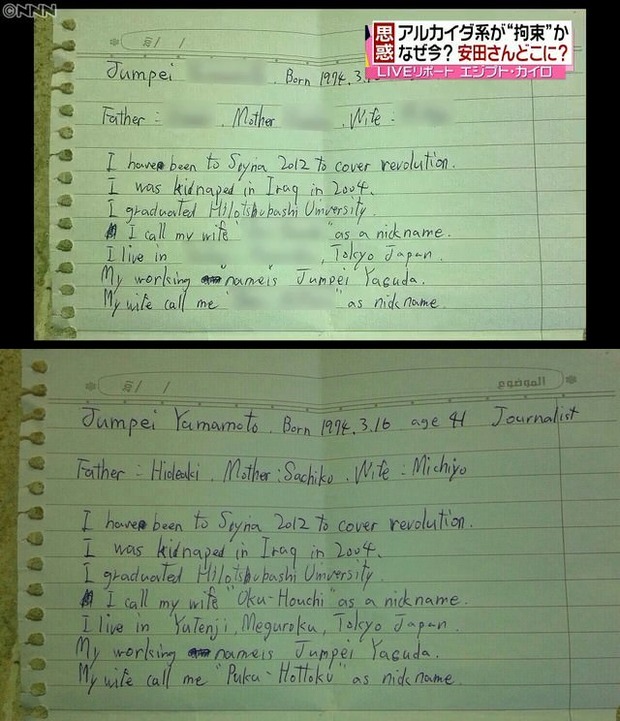 ©NNN
思惑
アルカイダ系が“拘束”か
なぜ今? 安田さんどこに?
LIVEリポート エジプト・カイロ
/ /
Jumpei Born 1974.3.16
Father : Mother Wife :
I have been to Syria 2012 to cover revolution.
I was kidnaped in Iraq in 2004.
I graduated Hilotsubashi University
I call my wife " " as a nickname.
I live in , Tokyo Japan.
My working nameis Jumpei Yasuda.
My wife call me " " as nickname
/ / الموضوع
Jumpei Yamamoto. Born 1974.3.16 age 41 Journalist
Father : Hideaki, Mother : Sachiko, Wife : Michiyo
I have been to Syria 2012 to cover revolution.
I was kidnaped in Iraq in 2004.
I graduated Hilotsubashi University
I call my wife "Oku-Houchi" as a nickname.
I live in Yutenji, Meguroku, Tokyo Japan.
My working nameis Jumpei Yasuda.
My wife call me "Puku-Hottoku" as nickname.